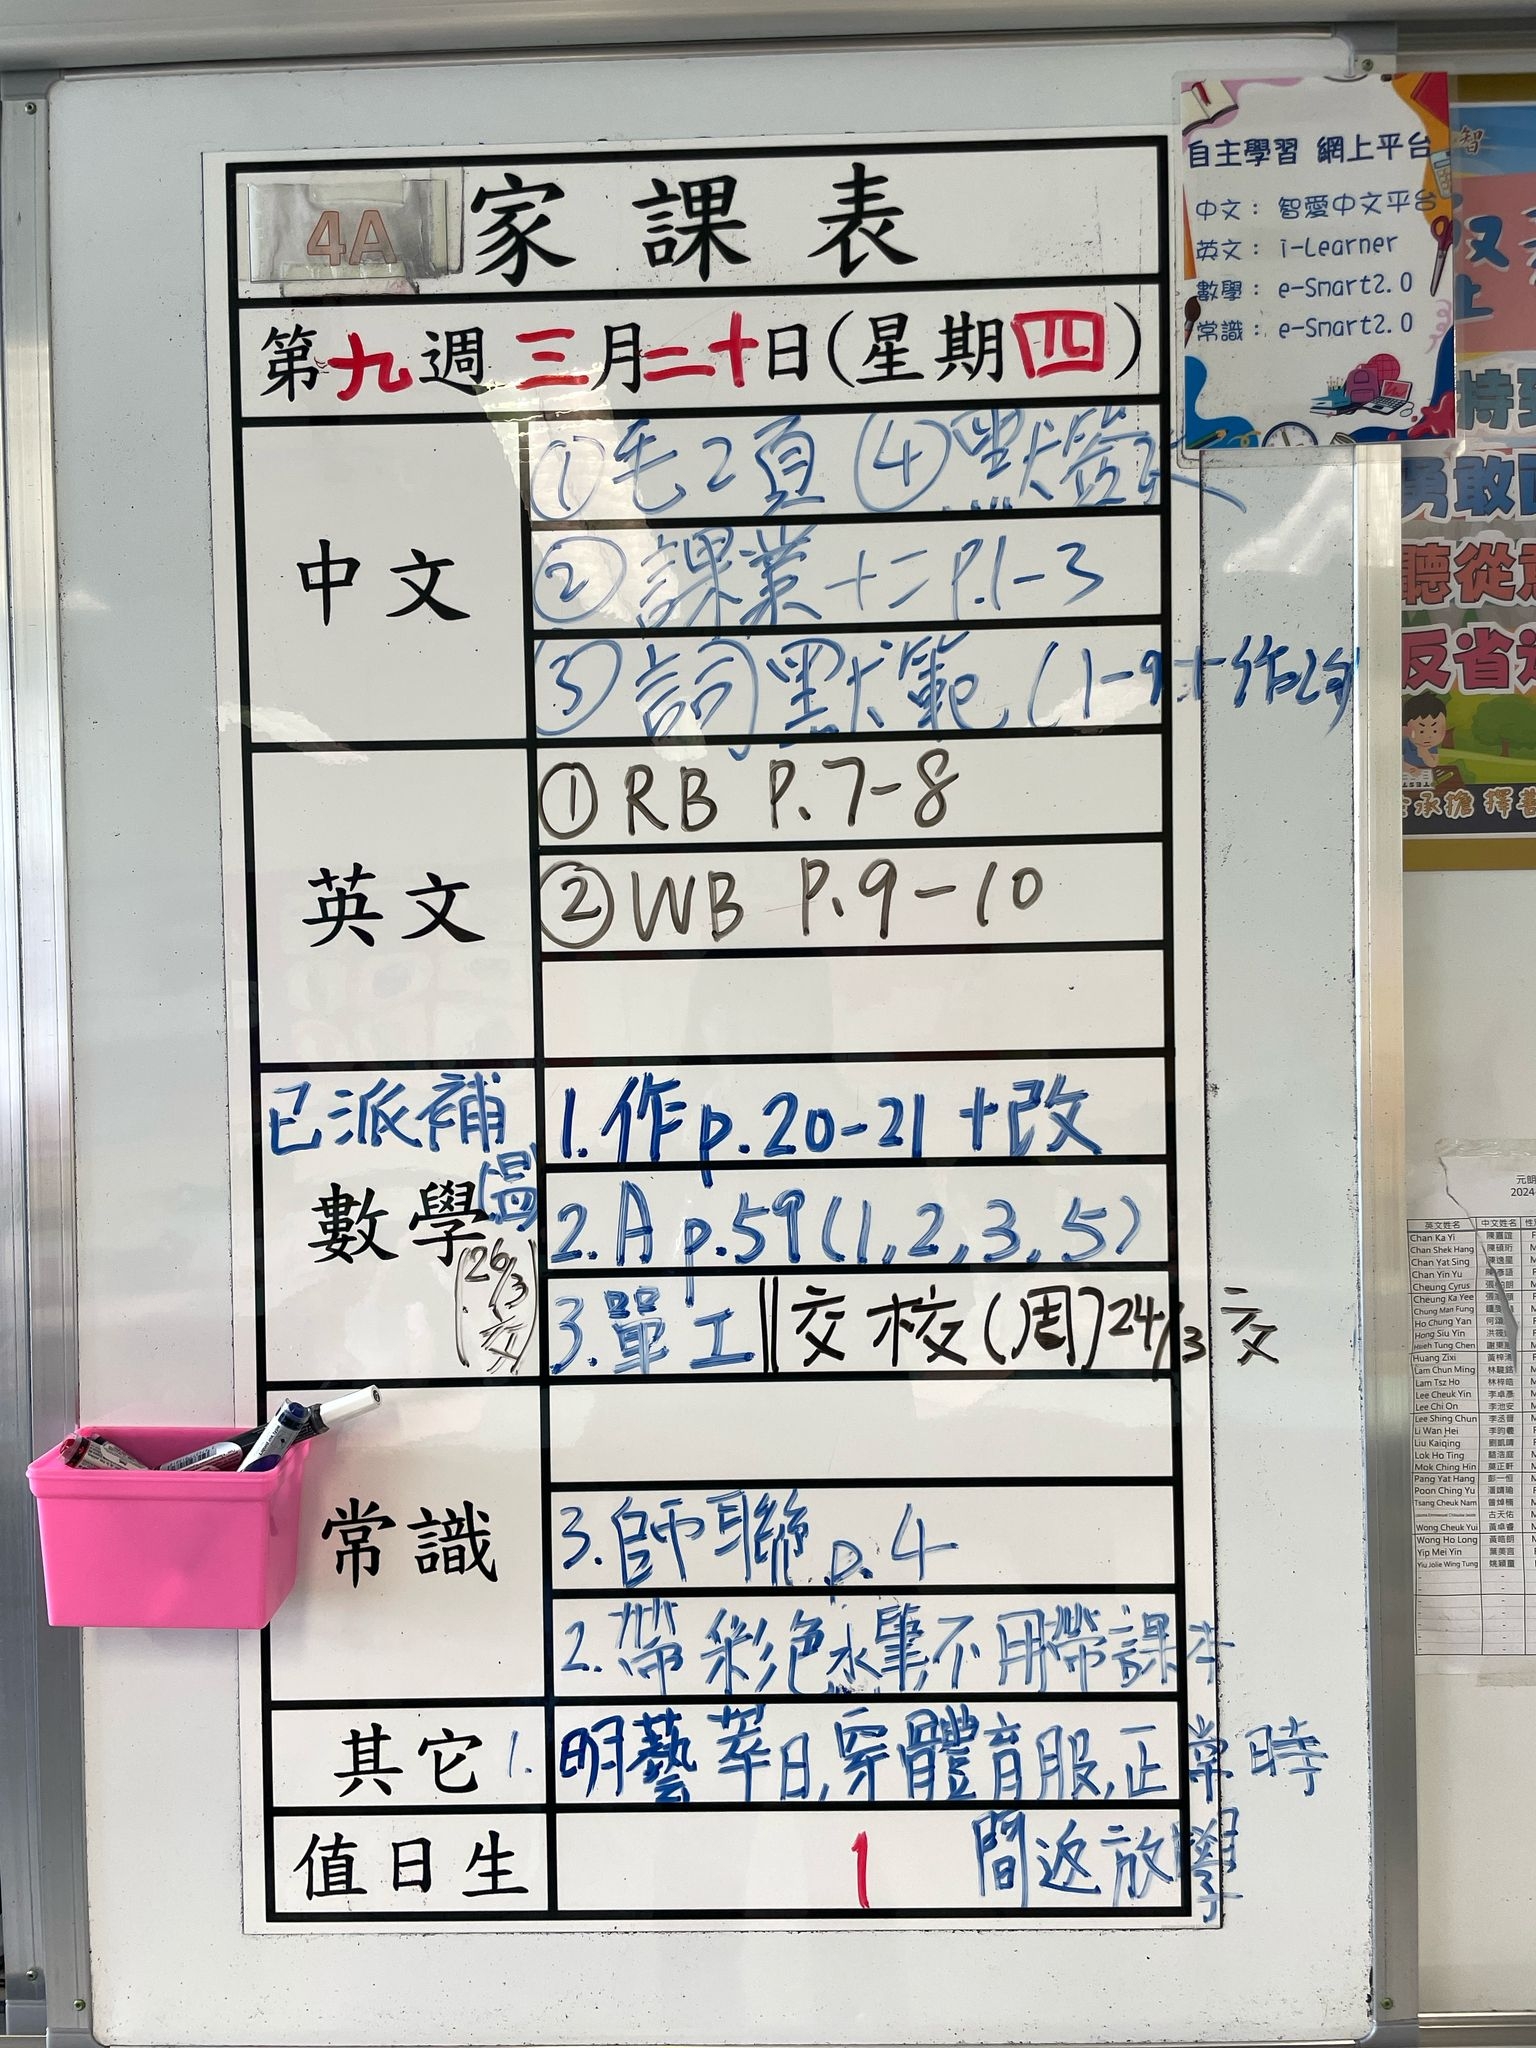 4A 家課表
第九週 三月二十日(星期四)
中文
①毛2頁 ④默簽
②課業十二P.1-3
③詞默範(1-9+作
英文
①RB P.7-8
②WB P.9-10
已派補
數學
(26/3
交)
1.作p.20-21+改
2.A p.59(1,2,3,5)
3.單工||交校(周)24/3交
常識
3.師聯p.4
2.帶彩色水筆,不用帶課本
其它 1.明藝萃日,穿體育服,正常時
間返放學
值日生 1
自主學習 網上平台
中文: 智愛中文平台
英文: i-Learner
數學: e-Smart2.0
常識: e-Smart2.0
智
持
勇敢
聽從
反省
承擔 擇
元朗
2024-
英文姓名 中文姓名
Chan Ka Yi
Chan Shek Hang
Chan Yat Sing
Chan Yin Yu
Cheung Cyrus
Cheung Ka Yee
Chung Man Fung
Ho Chung Yan
Hong Siu Yin
Hsieh Tung Chen
Huang Zixi
Lam Chun Ming
Lam Tsz Ho
Lee Cheuk Yin
Lee Chi On
Lee Shing Chun
Li Wan Hei
Liu Kaiqing
Lok Ho Ting
Mok Ching Hin
Pang Yat Hang
Poon Ching Yu
Tsang Cheuk Nam
Wong Cheuk Yui
Wong Ho Long
Yip Mei Yin
Yiu Jolie Wing Tung